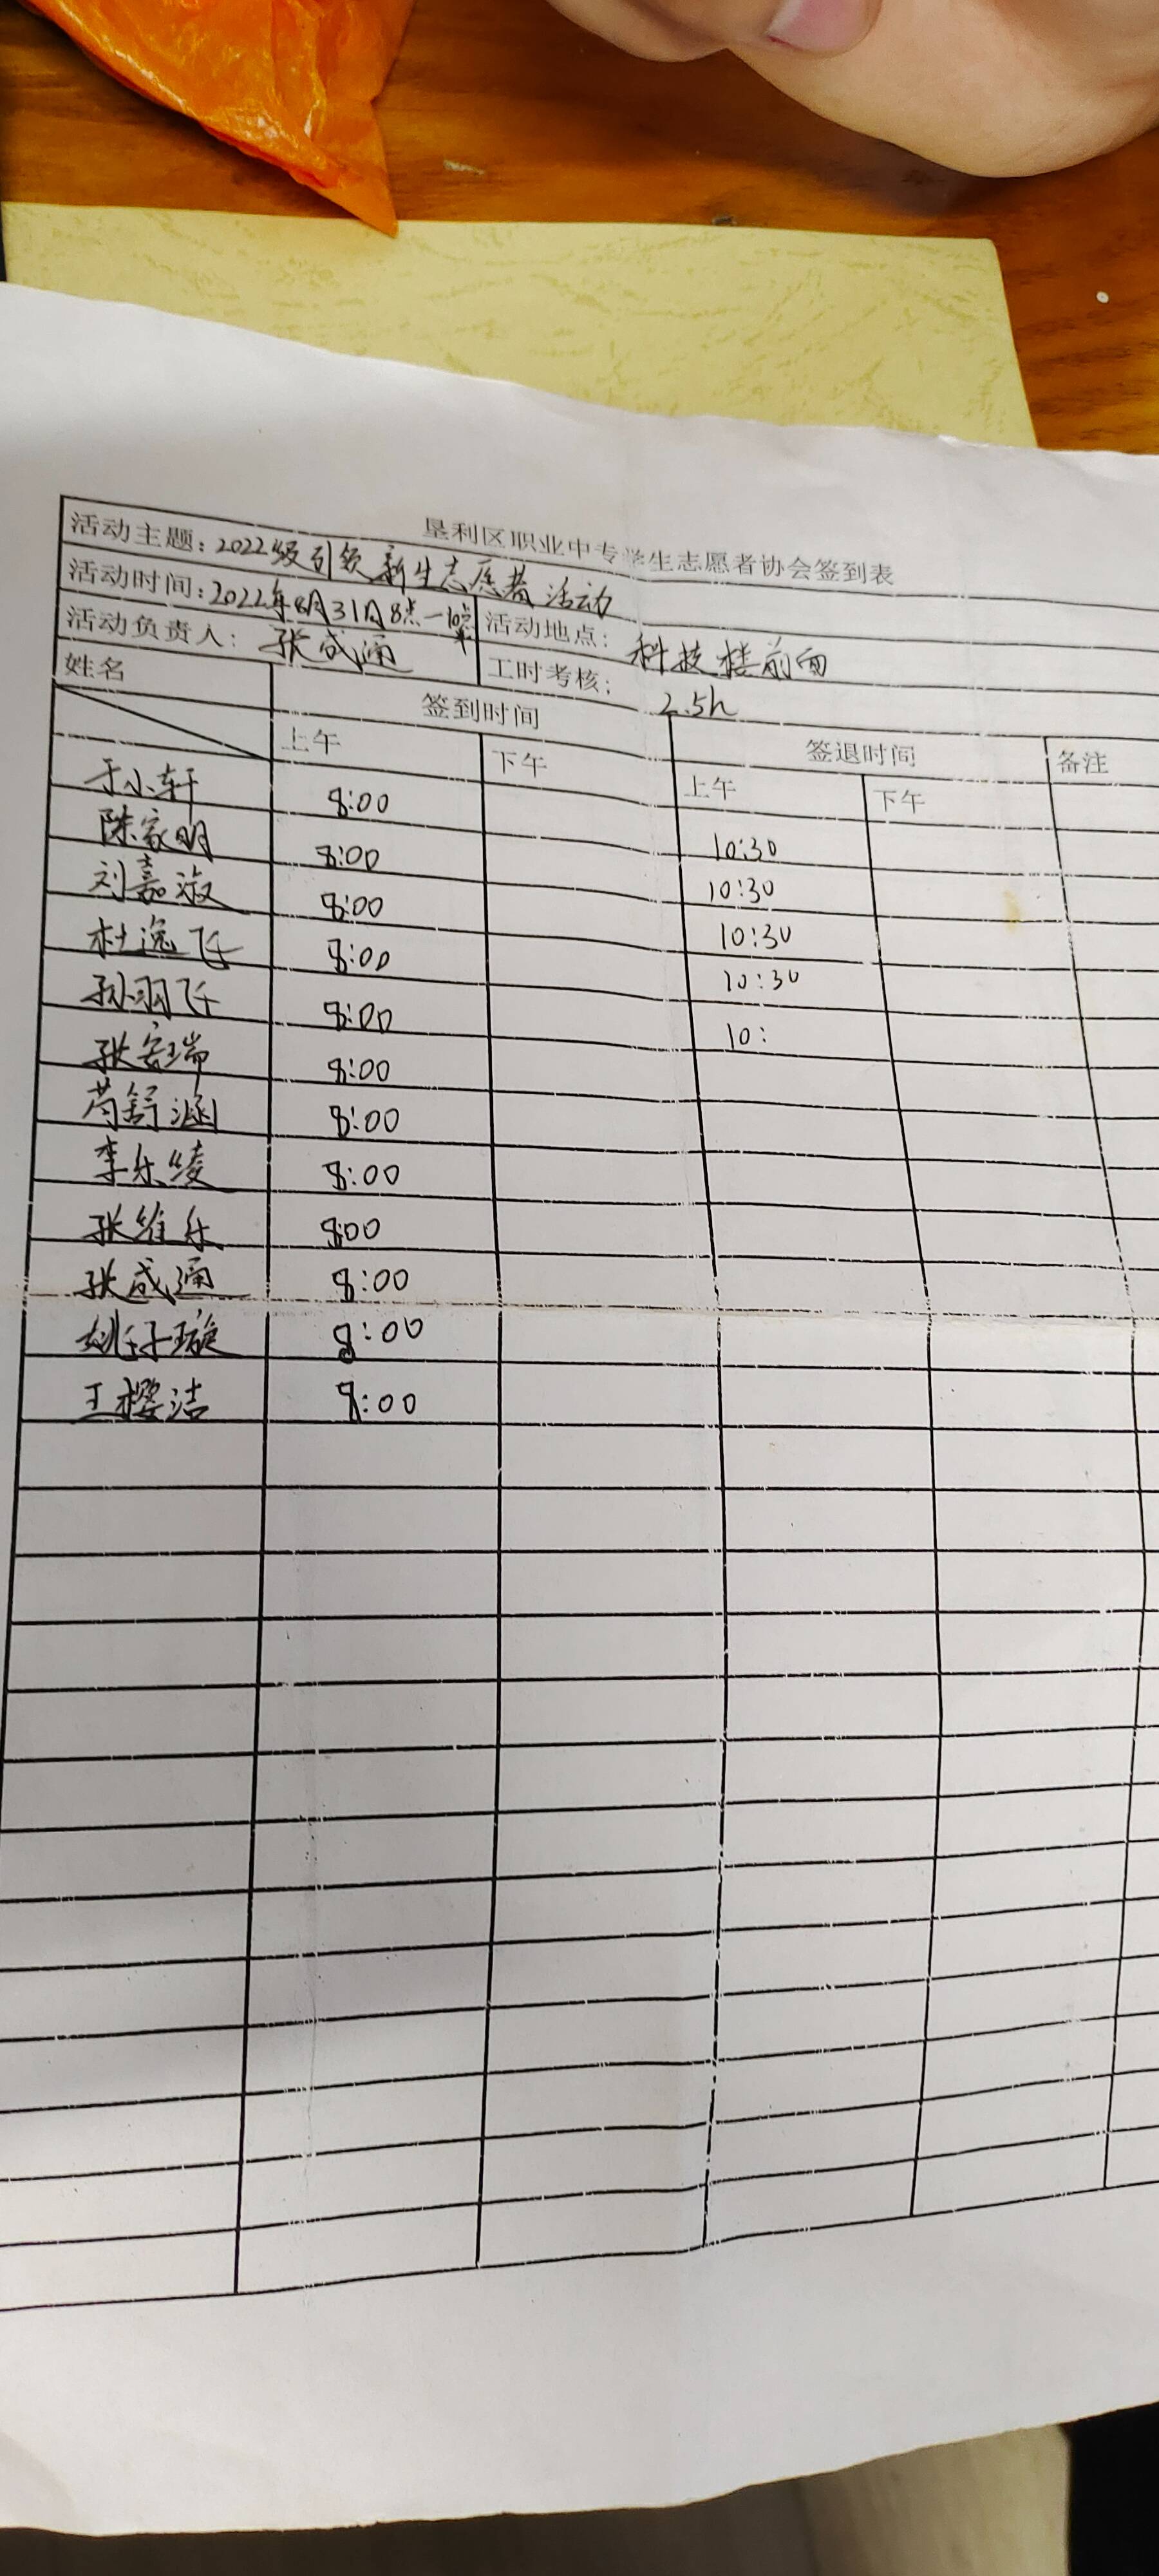 垦利区职业中专学生志愿者协会签到表
活动主题：2022级引领新生志愿者活动
活动时间：2022年8月31日8点—10点半 活动地点：科技楼前面
活动负责人：张成通 工时考核：2.5h
姓名 签到时间 签退时间 备注
上午 下午 上午 下午
于小轩 8:00 10:30
陈家明 8:00 10:30
刘嘉淑 8:00 10:30
杜逸飞 8:00 10:30
孙羽飞 8:00 10:
张安瑞 8:00
芮舒涵 8:00
李乐绫 8:00
张维乐 8:00
张成通 8:00
姚钰璇 8:00
王樱洁 8:00